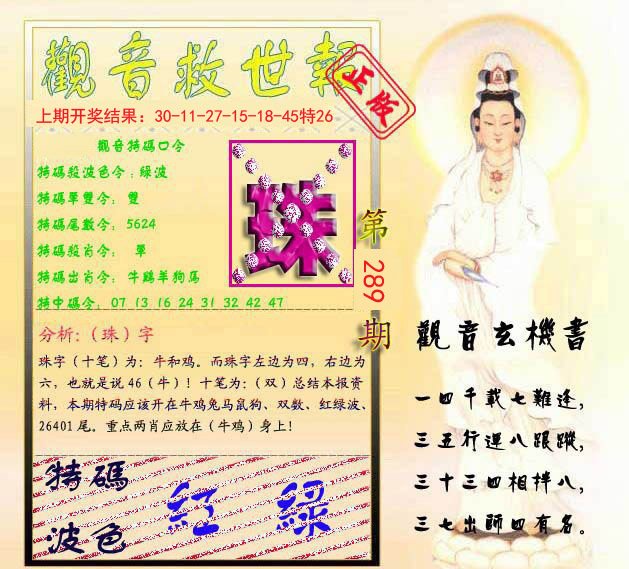 觀音救世報
正版
上期开奖结果：30-11-27-15-18-45特26
觀音特碼口令
特碼殺波色令：綠波
特碼單雙令：雙
特碼尾數令：5624
特碼殺肖令：單
特碼出肖令：牛鷄羊狗馬
特中碼令：07 13 16 24 31 32 42 47
珠
第289期
分析：（珠）字
珠字（十笔）为：牛和鸡。而珠字左边为四，右边为
六，也就是说46（牛）！十笔为：（双）总结本报资
料，本期特码应该开在牛鸡兔马鼠狗、双数、红绿波、
26401尾。重点两肖应放在（牛鸡）身上！
特碼
波色
紅 綠
觀音玄機書
一四千載七難逢，
三五行運八跟蹤，
三十三四相拌八，
三七出師四有名。